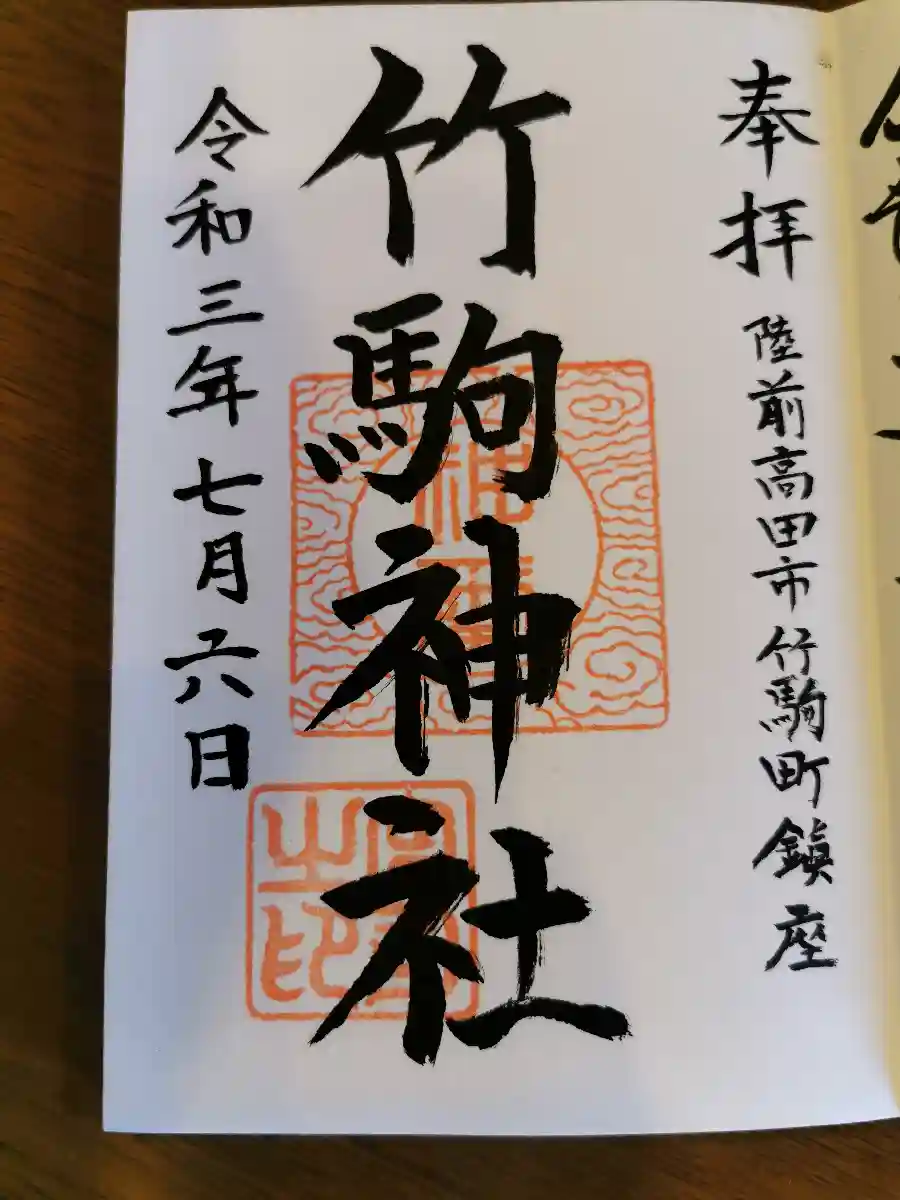 奉拝
陸前高田市竹駒町鎮座
竹駒神社
令和三年七月六日
之印